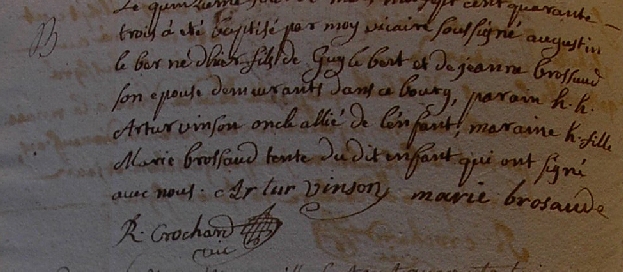 B
Le quinzieme jour de mai sept cent quarante
trois a été baptisé par moy vicaire soussigné augustin
le ber né d'hier fils de Guy le bert et de jeanne brossaud
son epouse demeurants dans ce bourg, parain h. h.
Artur vinson oncle allié de l'enfant, maraine h. fille
Marie brossaud tente du dit enfant qui ont signé
avec nous. Artur vinson marie brosaude
R. Crochard
vic